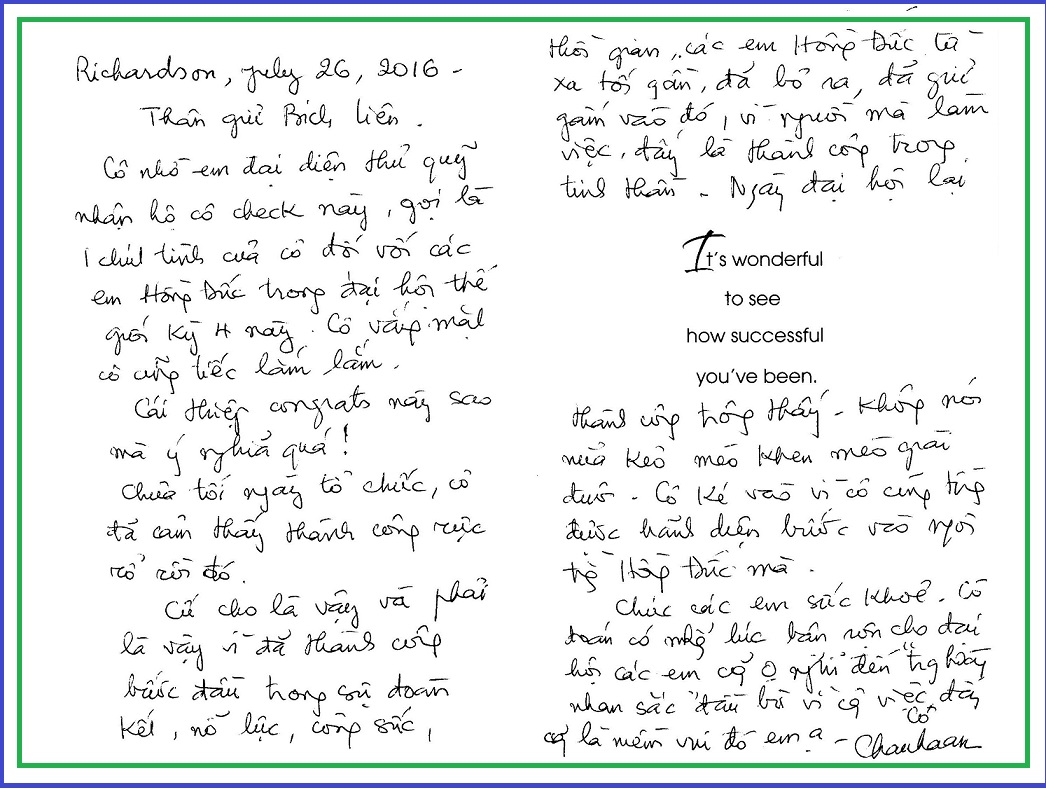 Richardson, july 26, 2016 -
Thân gửi Bích Liên .
Cô nhờ em đại diện thủ quỹ
nhận hộ cô check này , gọi là
1 chút tình của cô đối với các
em Hồng Đức trong đại hội thế
giới kỳ 4 này . Cô vắng mặt
cô cũng tiếc lắm lắm .
Cái thiệp congrats này sao
mà ý nghĩa quá !
Chưa tới ngày tổ chức, cô
đã cảm thấy thành công rực
rỡ rồi đó .
Cứ cho là vậy và phải
là vậy vì đã thành công
bước đầu trong sự đoàn
kết , nỗ lực , công sức ,
thời gian , các em Hồng Đức từ
xa tới gần , đã bỏ ra , đã gửi
gấm vào đó , vì người mà làm
việc , đấy là thành công trong
tinh thần - Ngày đại hội lại
It's wonderful
to see
how successful
you've been.
thành công trông thấy - Không nói
nữa kẻo mèo khen mèo dài
đuôi - Cô ké vào vì cô cũng từng
được hãnh diện bước vào ngôi
trg Hồng Đức mà .
Chúc các em sức khoẻ . Cô
đoán có những lúc bận rộn cho đại
hội các em cg 0 nghĩ đến
nhan sắc đâu bù vì cg việc đầy
cg là niềm vui đó em ạ -
Cô
Chanhaan